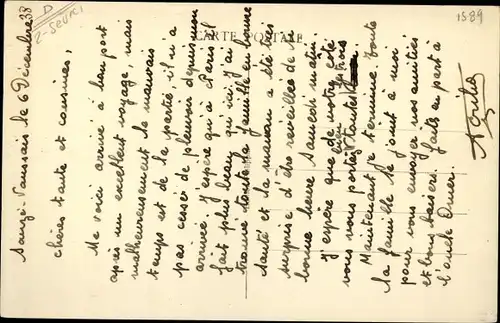 CARTE POSTALE
D
2-SEVRES
1589
Sauzé-Vaussais le 6 Décembre 38
chères tante et cousines,
Me voici arrivé à bon port
après un excellent voyage, mais
malheureusement le mauvais
temps est de la partie, il n'a
pas cesser de pleuvoir depuis mon
arrivée. J'espère qu'à Paris il
fait plus beau qu'ici. J'ai
trouvé toute la famille en bonne
santé et la maman a été très
surprise d'être réveillée de si
bonne heure Samedi matin.
J'espère que de votre côté
vous vous portez toutes bien
Maintenant je termine toute
la famille se joint à moi
pour vous envoyer nos amitiés
et bons baiser. faits en part à
l'oncle Omer.